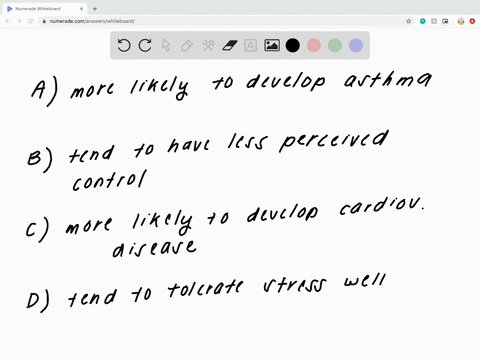 Numerade Whiteboard
numerade.com/answers/whiteboard/
A) more likely to develop asthma
B) tend to have less perceived
control
C) more likely to develop cardiov.
disease
D) tend to tolerate stress well